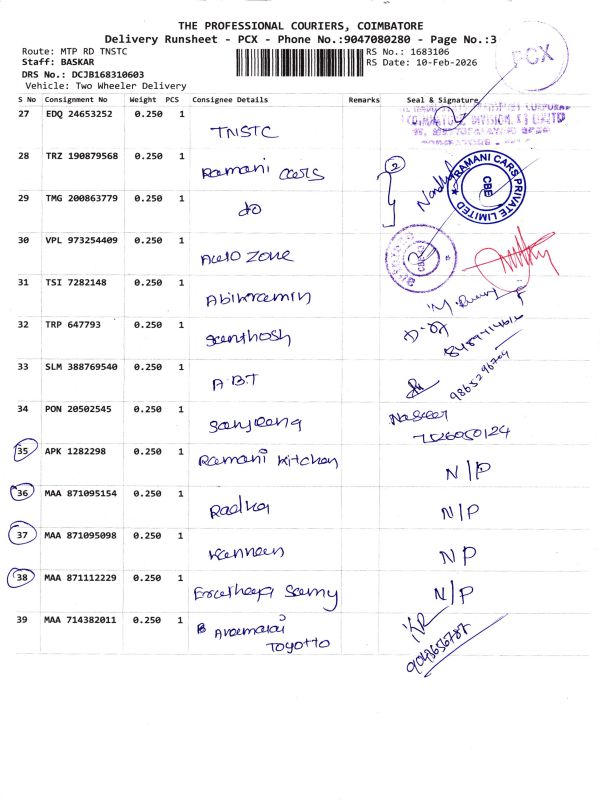 THE PROFESSIONAL COURIERS, COIMBATORE
Delivery Runsheet - PCX - Phone No.:9047080280 - Page No.:3
Route: MTP RD TNSTC
RS No.: 1683106
Staff: BASKAR
RS Date: 10-Feb-2026
DRS No.: DCJB168310603
Vehicle: Two Wheeler Delivery
PCX
S No Consignment No Weight PCS Consignee Details Remarks Seal & Signature
27 EDQ 24653252 0.250 1 TNSTC
28 TRZ 190879568 0.250 1 Ramani cars
RAMANI CARS PRIVATE LIMITED
CBE
29 TMG 200863779 0.250 1 do
30 VPL 973254409 0.250 1 Auto Zone
31 TSI 7282148 0.250 1 Abikramin
32 TRP 647793 0.250 1 Santhosh
33 SLM 388769540 0.250 1 A.B.T
34 PON 20502545 0.250 1 Naseer
7526050124
35 APK 1282298 0.250 1 Ramani Kitchen N/P
36 MAA 871095154 0.250 1 Radha N/P
37 MAA 871095098 0.250 1 Kannan NP
38 MAA 871112229 0.250 1 Samy N/P
39 MAA 714382011 0.250 1 Anamalai
Toyotto
9043656787